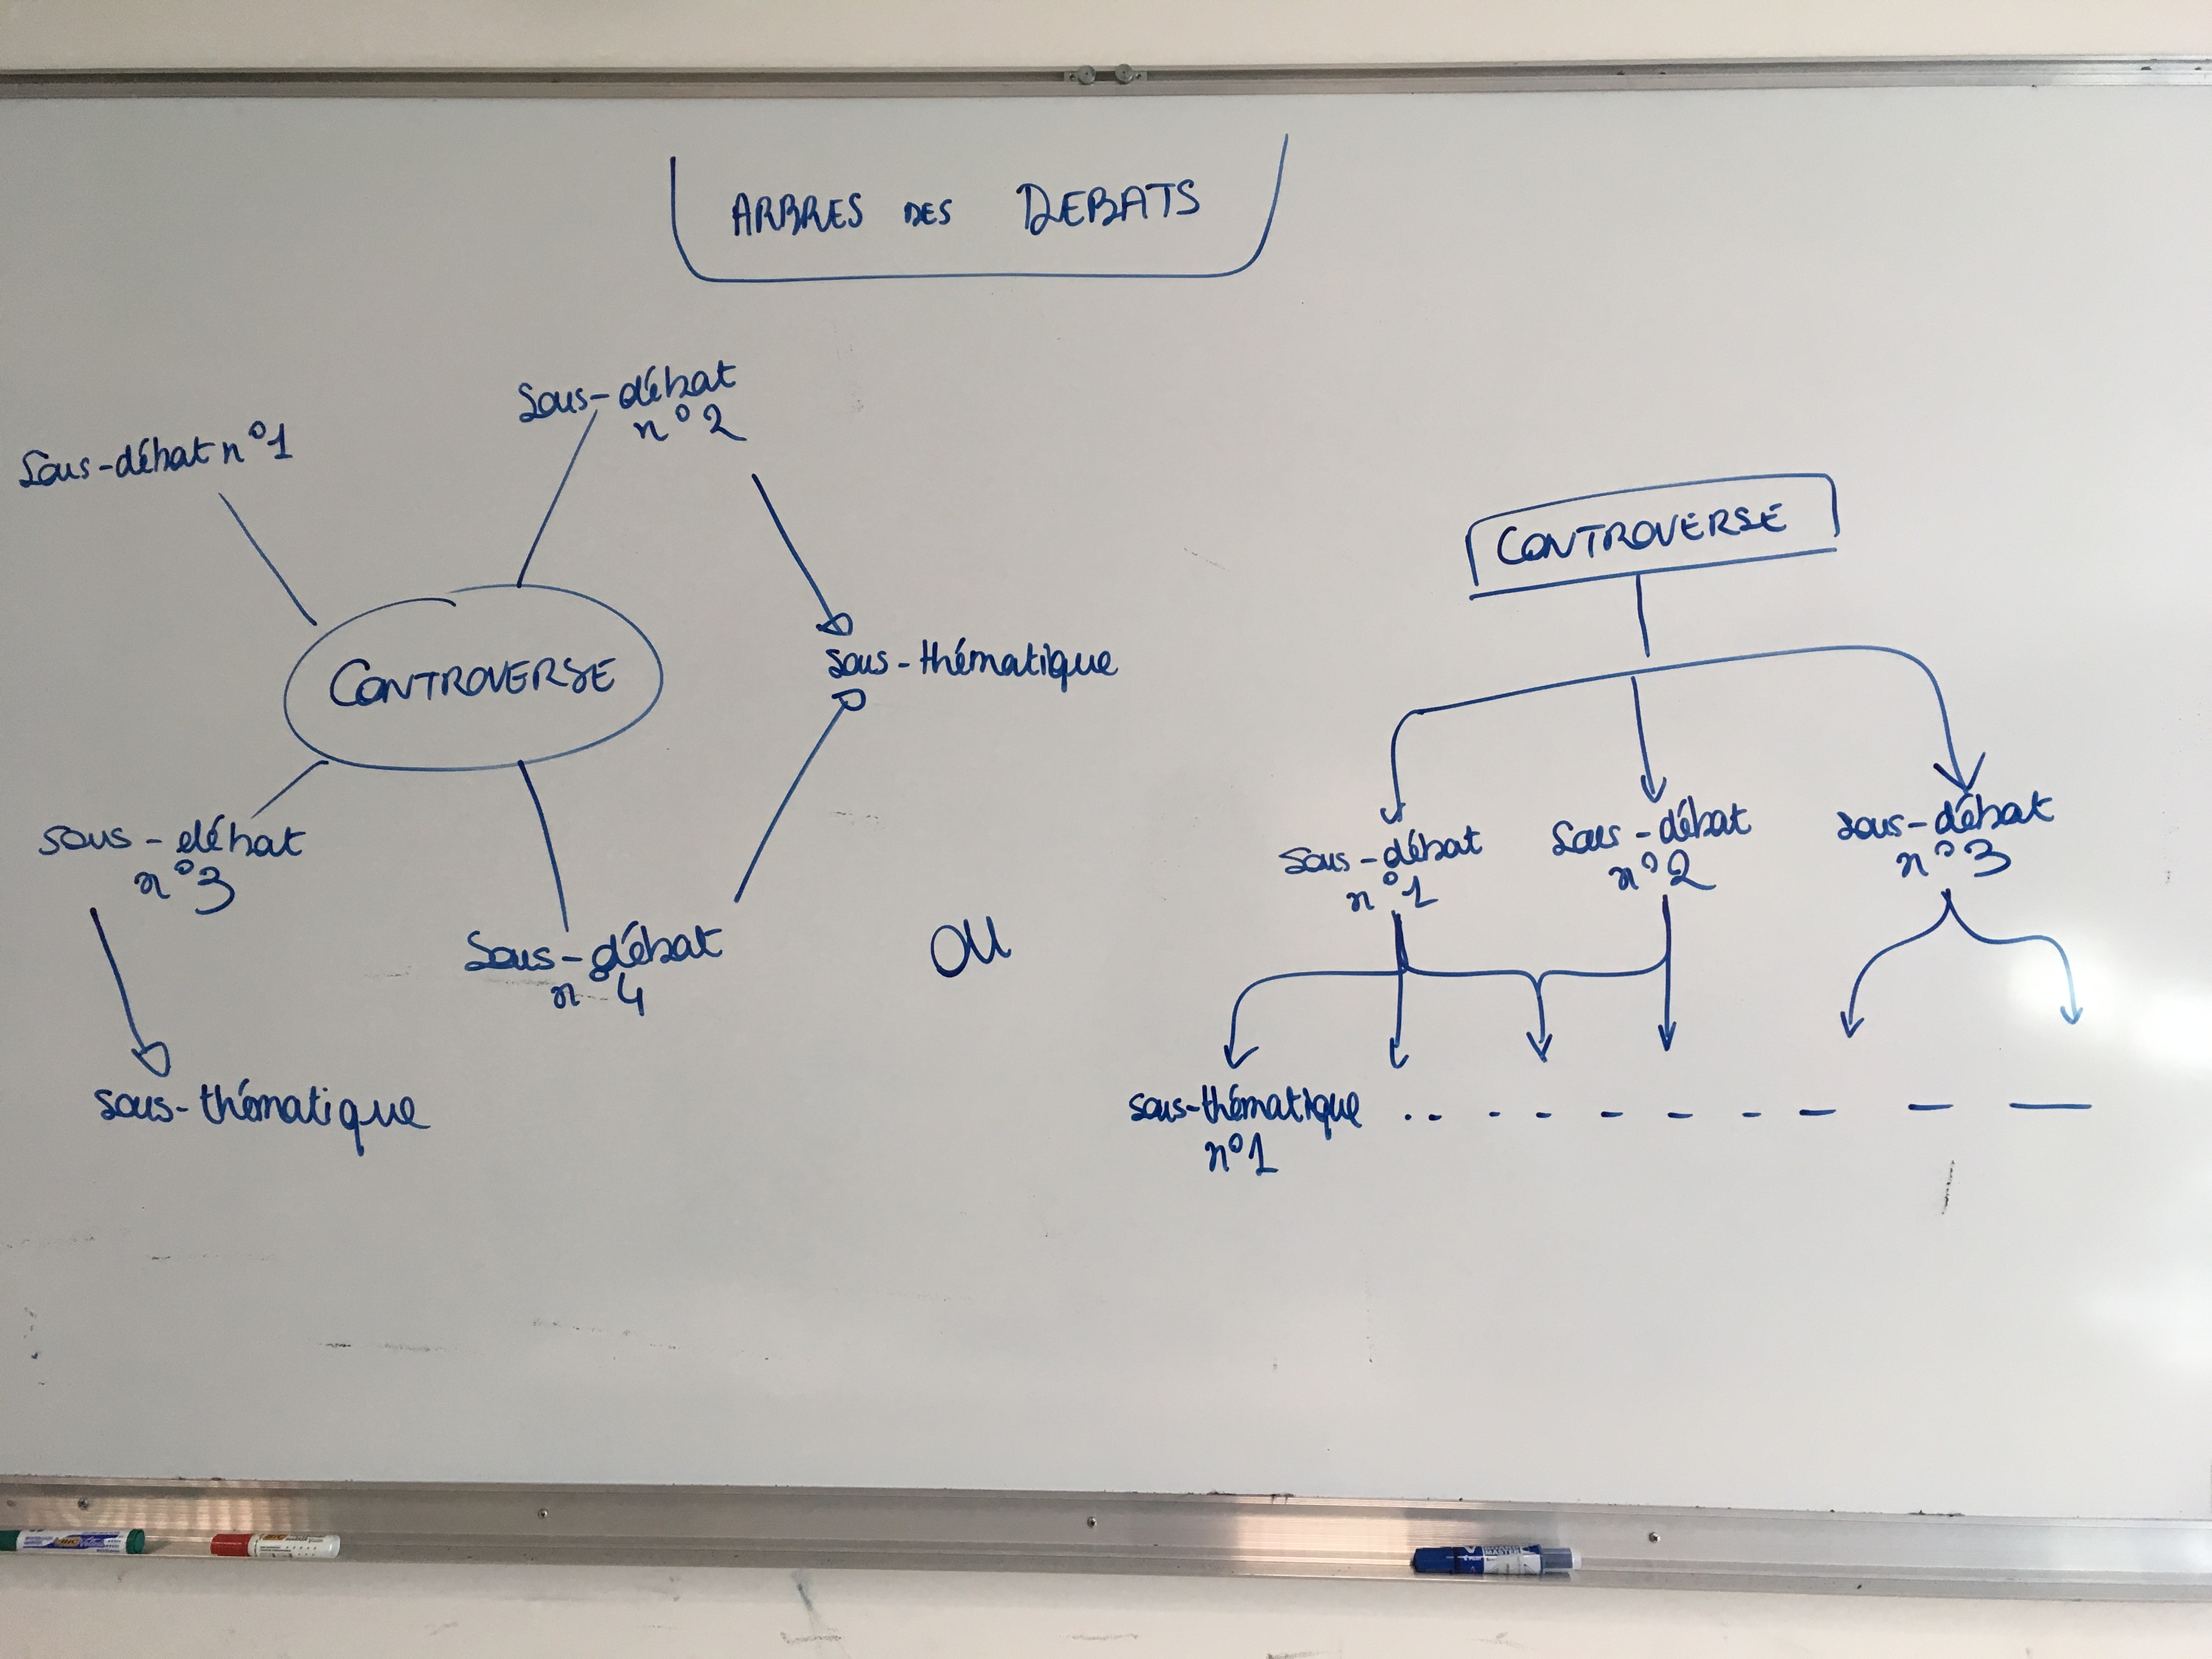 ARBRES DES DEBATS
Sous-débat n°1
Sous-débat
n°2
CONTROVERSE
sous-thématique
sous-débat
n°3
Sous-débat
n°4
sous-thématique
OU
CONTROVERSE
Sous-débat
n°1
Sous-débat
n°2
sous-débat
n°3
sous-thématique ..--------
n°1